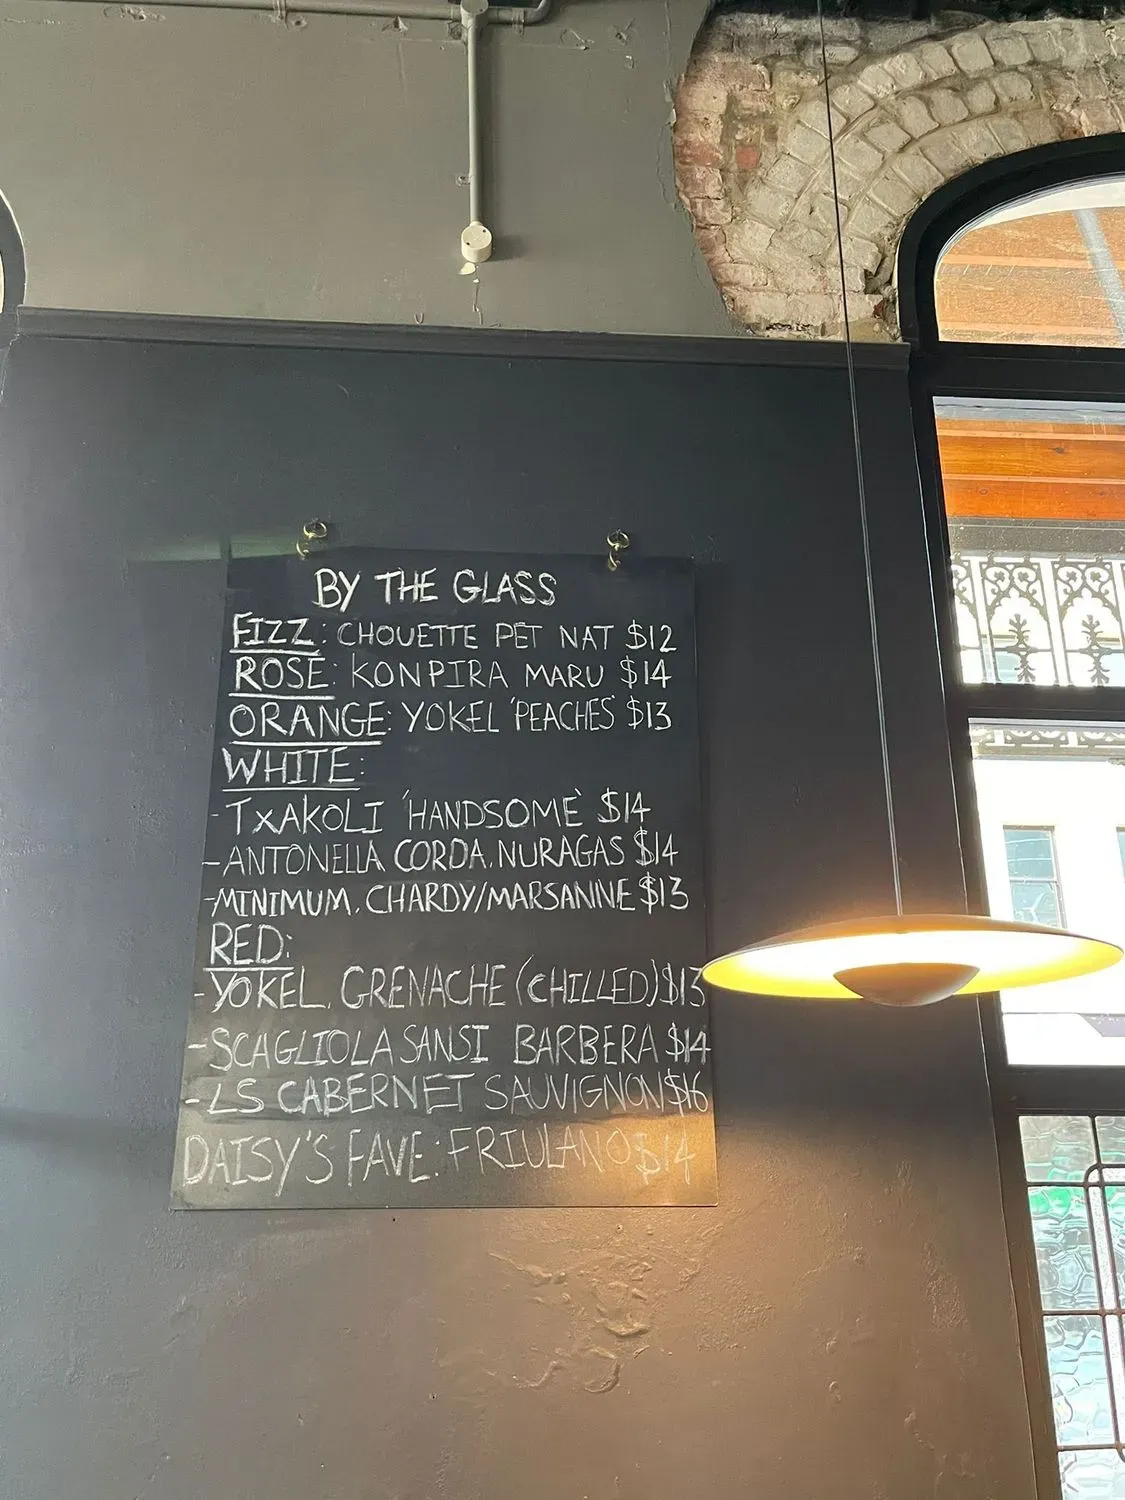 BY THE GLASS
FIZZ: CHOUETTE PET NAT $12
ROSÉ: KONPIRA MARU $14
ORANGE: YOKEL 'PEACHES' $13
WHITE:
- TXAKOLI 'HANDSOME' $14
- ANTONELLA CORDA. NURAGAS $14
- MINIMUM. CHARDY/MARSANNE $13
RED:
- YOKEL. GRENACHE (CHILLED) $13
- SCAGLIOLA SANSI BARBERA $14
- LS CABERNET SAUVIGNON $16
DAISY'S FAVE: FRIULANO $14